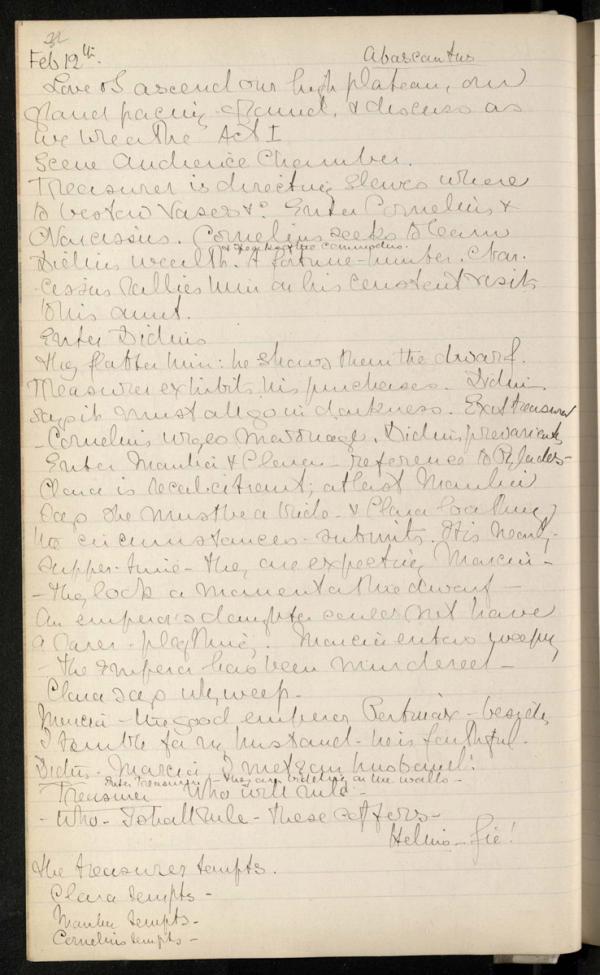 Feb 12th.
Abascantus
Love & I ascend our high plateau, our
grand pacing-ground, & discuss as
we breathe Act I
Scene Audience Chamber.
Treasurer is directing slaves where
to bestow vases &c. Enter Cornelius &
Narcissus. Cornelius seeks to learn
Didius wealth. A fortune-hunter. Nar-
cissus rallies him on his constant visits
to his aunt.
Enter Didius
they flatter him: he shows them the dwarf.
Treasurer exhibits his purchases. Didius
says it must all go in darkness. Exit treasurer
- Cornelius urges marriage. Didius prevaricates
Enter Manlia & Clara - reference to Pylades -
Clara is recalcitrant; at last Manlia
says she must be a bride - & Clara loathing
the circumstances - submits. It is nearly
supper-time - they are expecting Marcia -
- They look a moment at the dwarf -
An emperor's daughter could not have
a rarer plaything. Marcia enters weeping
- The Emperor has been murdered -
Clara says why weep -
Marcia - the good emperor Pertinax - besides
I tremble for my husband - he is faithful.
Didius. Marcia I met your husband!
Enter Treasurer - they are bidding on the walls -
Treasurer Who will rule -
- Who - I shall rule - these coffers -
Helius - fie!
The treasurer tempts.
Clara tempts -
Manlia tempts -
Cornelius tempts -